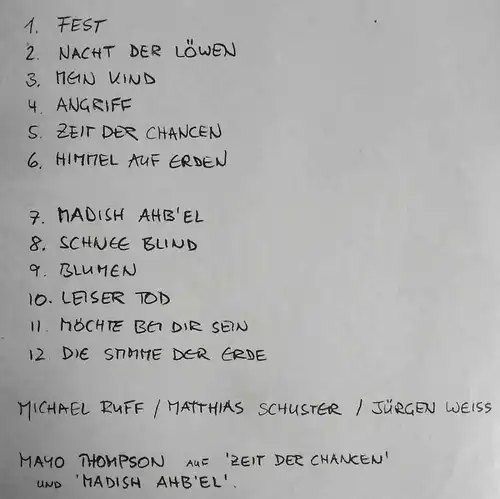 1. FEST
2. NACHT DER LÖWEN
3. MEIN KIND
4. ANGRIFF
5. ZEIT DER CHANCEN
6. HIMMEL AUF ERDEN
7. MADISH AHB'EL
8. SCHNEE BLIND
9. BLUMEN
10. LEISER TOD
11. MÖCHTE BEI DIR SEIN
12. DIE STIMME DER ERDE
MICHAEL RUFF / MATTHIAS SCHUSTER / JÜRGEN WEISS
MAYO THOMPSON AUF 'ZEIT DER CHANCEN'
UND 'MADISH AHB'EL'.